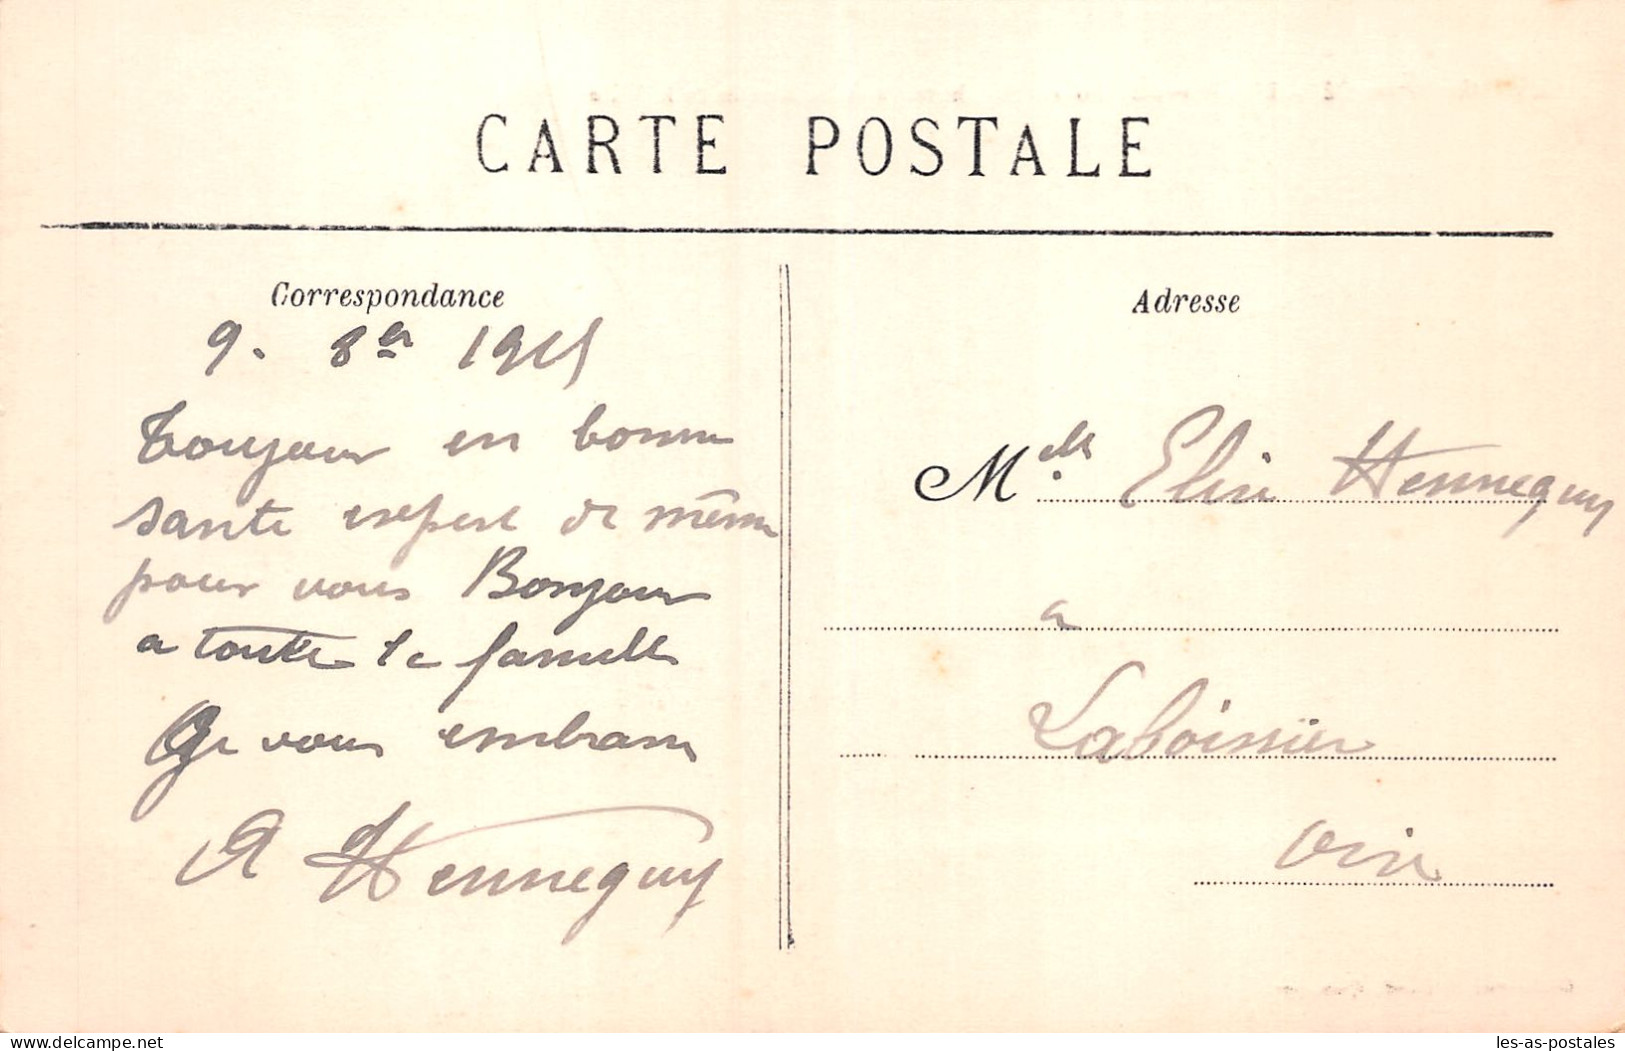 CARTE POSTALE
Correspondance
9. 8re 1915
Toujour en bonne
sante espert de même
pour vous Bonjour
a toute la famille
Je vous embrasse
A Hennequy
Adresse
Melle Elise Hennequy
a
Laboissière
Oise
delcampe.net
les-as-postales